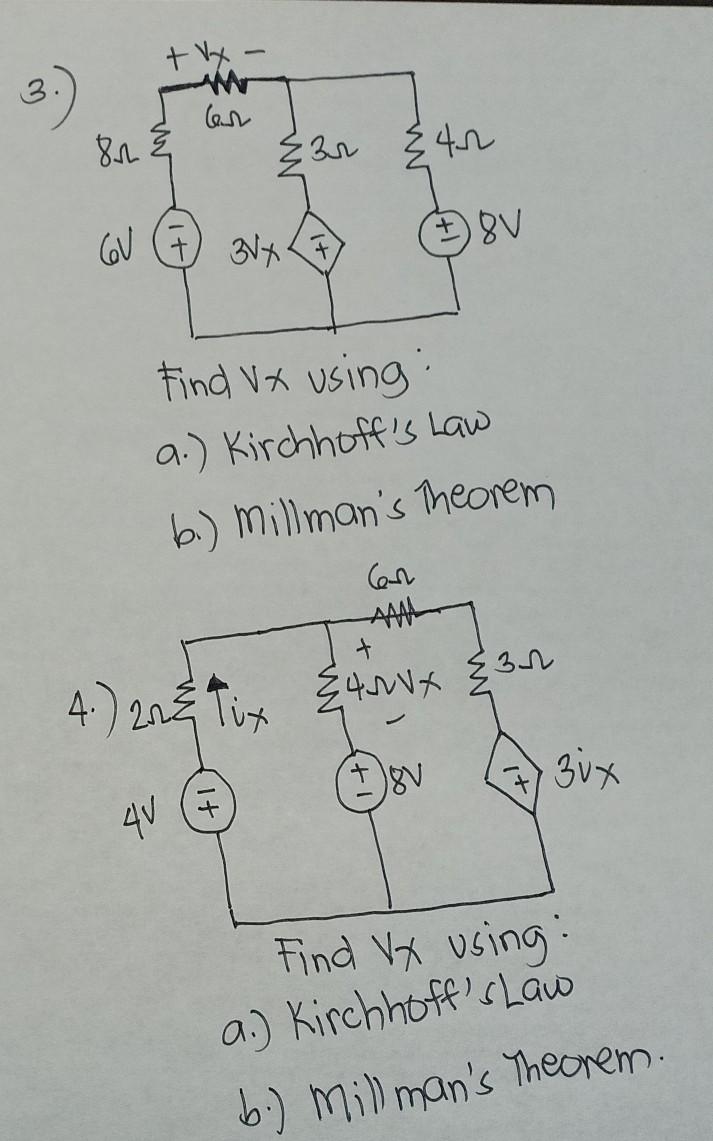 3.)
+ Vx -
6Ω
8Ω
3Ω
4Ω
6V
- +
3Vx
- +
+ -
8V
Find Vx using:
a.) Kirchhoff's Law
b.) Millman's Theorem
6Ω
4.)
2Ω
ix
+
4Ω Vx
-
3Ω
4V
- +
+ -
8V
- +
3ix
Find Vx using:
a.) Kirchhoff's Law
b.) Millman's Theorem.